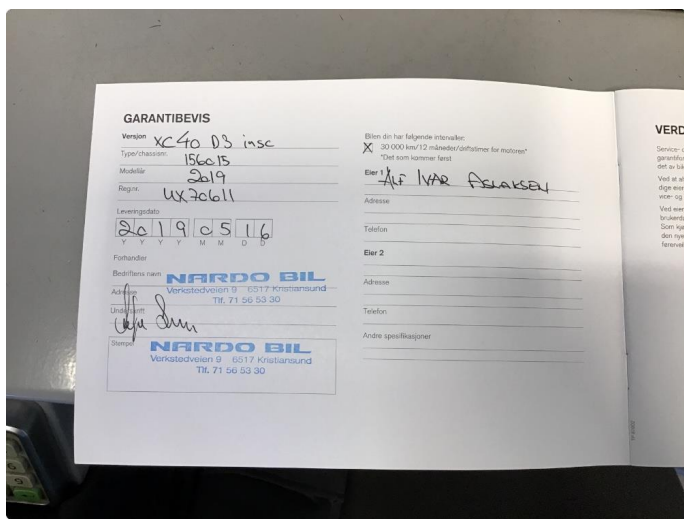 GARANTIBEVIS
Versjon XC40 D3 insc.
Type/chassisnr. 156015
Modellår 2019
Reg.nr. UX70611
Leveringsdato
2019 05 16
Y Y Y Y M M D D
Forhandler
Bedriftens navn NARDO BIL
Adresse Verkstedveien 9 6517 Kristiansund
Tlf. 71 56 53 30
Underskrift
Stempel NARDO BIL
Verkstedveien 9 6517 Kristiansund
Tlf. 71 56 53 30
Bilen din har følgende intervaller:
X 30 000 km/12 måneder/driftstimer for motoren*
*Det som kommer først
Eier 1 ALF IVAR ASLAKSEN
Adresse
Telefon
Eier 2
Adresse
Telefon
Andre spesifikasjoner
VERD
Service-
garantifor
det av bil
Ved at
dige eier
vice- og
Ved eier
brukerda
Som kjø
den nye
førervei